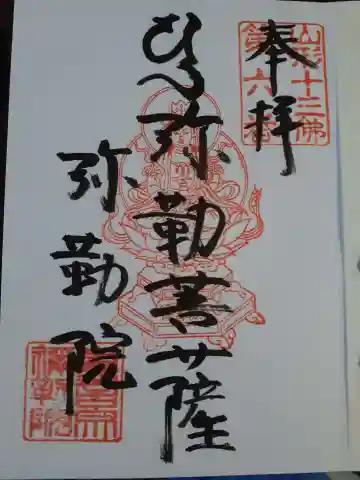 奉拝
山形十三佛
第六番
弥勒菩薩
弥勒院